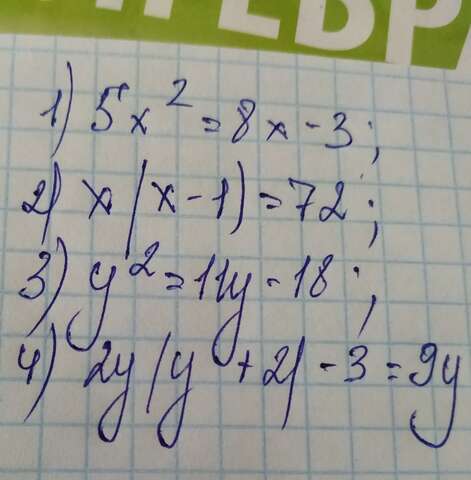 1) 5x² = 8x - 3;
2) x(x - 1) = 72;
3) y² = 11y - 18;
4) 2y(y + 2) - 3 = 9y